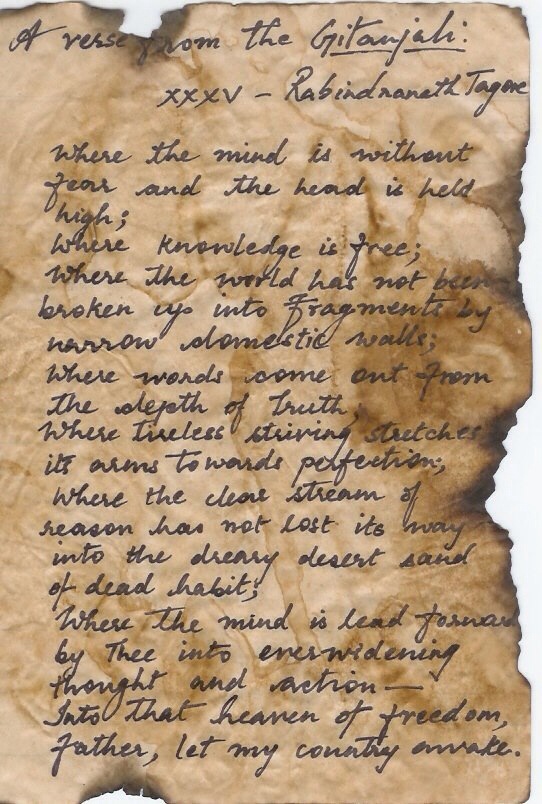 A verse from the Gitanjali:
XXXV - Rabindranath Tagore
Where the mind is without
fear and the head is held
high;
Where knowledge is free;
Where the world has not been
broken up into fragments by
narrow domestic walls;
Where words come out from
the depth of Truth;
Where tireless striving stretches
its arms towards perfection;
Where the clear stream of
reason has not lost its way
into the dreary desert sand
of dead habit;
Where the mind is lead forward
by Thee into everwidening
thought and action—
Into that heaven of freedom,
Father, let my country awake.